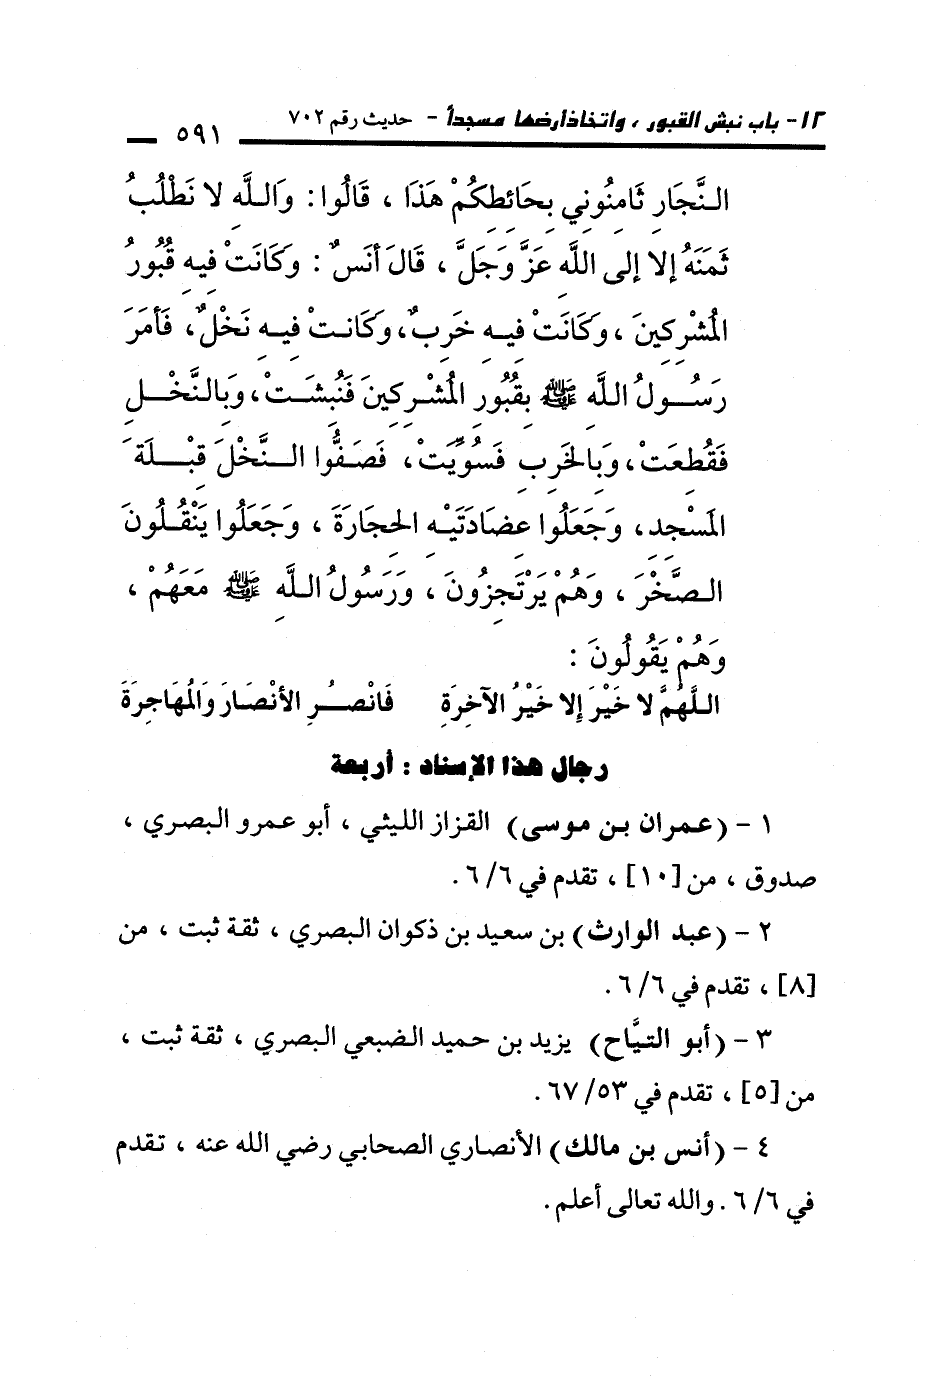 ١٢- باب نبش القبور ، واتخاذ أرضها مسجداً - حديث رقم ٧٠٢
٥٩١
النَّجَارِ ثَامِنُونِي بِحَائِطِكُمْ هَذَا ، قَالُوا : وَاللَّهِ لا نَطْلُبُ
ثَمَنَهُ إلا إلى اللَّهِ عَزَّ وَجَلَّ ، قَالَ أنَسٌ : وَكَانَتْ فِيهِ قُبُورُ
المُشْرِكِينَ ، وَكَانَتْ فِيهِ خَرِبٌ، وَكَانَتْ فِيهِ نَخْلٌ، فَأمَرَ
رَسُولُ اللَّهِ ﷺ بِقُبُورِ المُشْرِكِينَ فَنُبِشَتْ، وَبِالنَّخْلِ
فَقُطِعَتْ، وَبِالخَرِبِ فَسُوِّيَتْ، فَصَفُّوا النَّخْلَ قِبْلَةَ
المَسْجِدِ، وَجَعَلُوا عِضَادَتَيْهِ الحِجَارَةَ ، وَجَعَلُوا يَنْقُلُونَ
الصَّخْرَ ، وَهُمْ يَرْتَجِزُونَ ، وَرَسُولُ اللَّهِ ﷺ مَعَهُمْ ،
وَهُمْ يَقُولُونَ :
اللَّهُمَّ لا خَيْرَ إلا خَيْرُ الآخِرَةِ فَانْصُرِ الأنْصَارَ وَالمُهَاجِرَةَ
رجال هذا الإسناد : أربعة
١ - (عمران بن موسى) القزاز الليثي ، أبو عمرو البصري ،
صدوق ، من [١٠] ، تقدم في ٦/ ٦ .
٢ - (عبد الوارث) بن سعيد بن ذكوان البصري ، ثقة ثبت ، من
[٨] ، تقدم في ٦/ ٦ .
٣ - (أبو التيَّاح) يزيد بن حميد الضبعي البصري ، ثقة ثبت ،
من [٥] ، تقدم في ٥٣/ ٦٧ .
٤ - (أنس بن مالك) الأنصاري الصحابي رضي الله عنه ، تقدم
في ٦/ ٦ . والله تعالى أعلم .